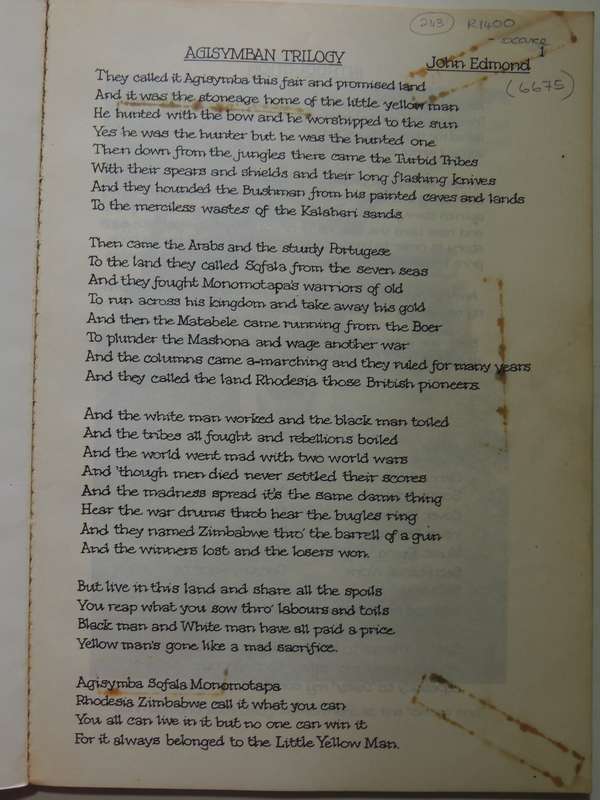 243 R1400
- scarce
AGISYMBAN TRILOGY
1
John Edmond
(6675)
They called it Agisymba this fair and promised land
And it was the stoneage home of the little yellow man
He hunted with the bow and he worshipped to the sun
Yes he was the hunter but he was the hunted one
Then down from the jungles there came the Turbid Tribes
With their spears and shields and their long flashing knives
And they hounded the Bushman from his painted caves and lands
To the merciless wastes of the Kalahari sands.
Then came the Arabs and the sturdy Portugese
To the land they called Sofala from the seven seas
And they fought Monomotapa's warriors of old
To run across his kingdom and take away his gold
And then the Matabele came running from the Boer
To plunder the Mashona and wage another war
And the columns came a-marching and they ruled for many years
And they called the land Rhodesia those British pioneers.
And the white man worked and the black man toiled
And the tribes all fought and rebellions boiled
And the world went mad with two world wars
And 'though men died never settled their scores
And the madness spread it's the same damn thing
Hear the war drums throb hear the bugles ring
And they named Zimbabwe thro' the barrell of a gun
And the winners lost and the losers won.
But live in this land and share all the spoils
You reap what you sow thro' labours and toils
Black man and White man have all paid a price
Yellow man's gone like a mad sacrifice.
Agisymba Sofala Monomotapa
Rhodesia Zimbabwe call it what you can
You all can live in it but no one can win it
For it always belonged to the Little Yellow Man.